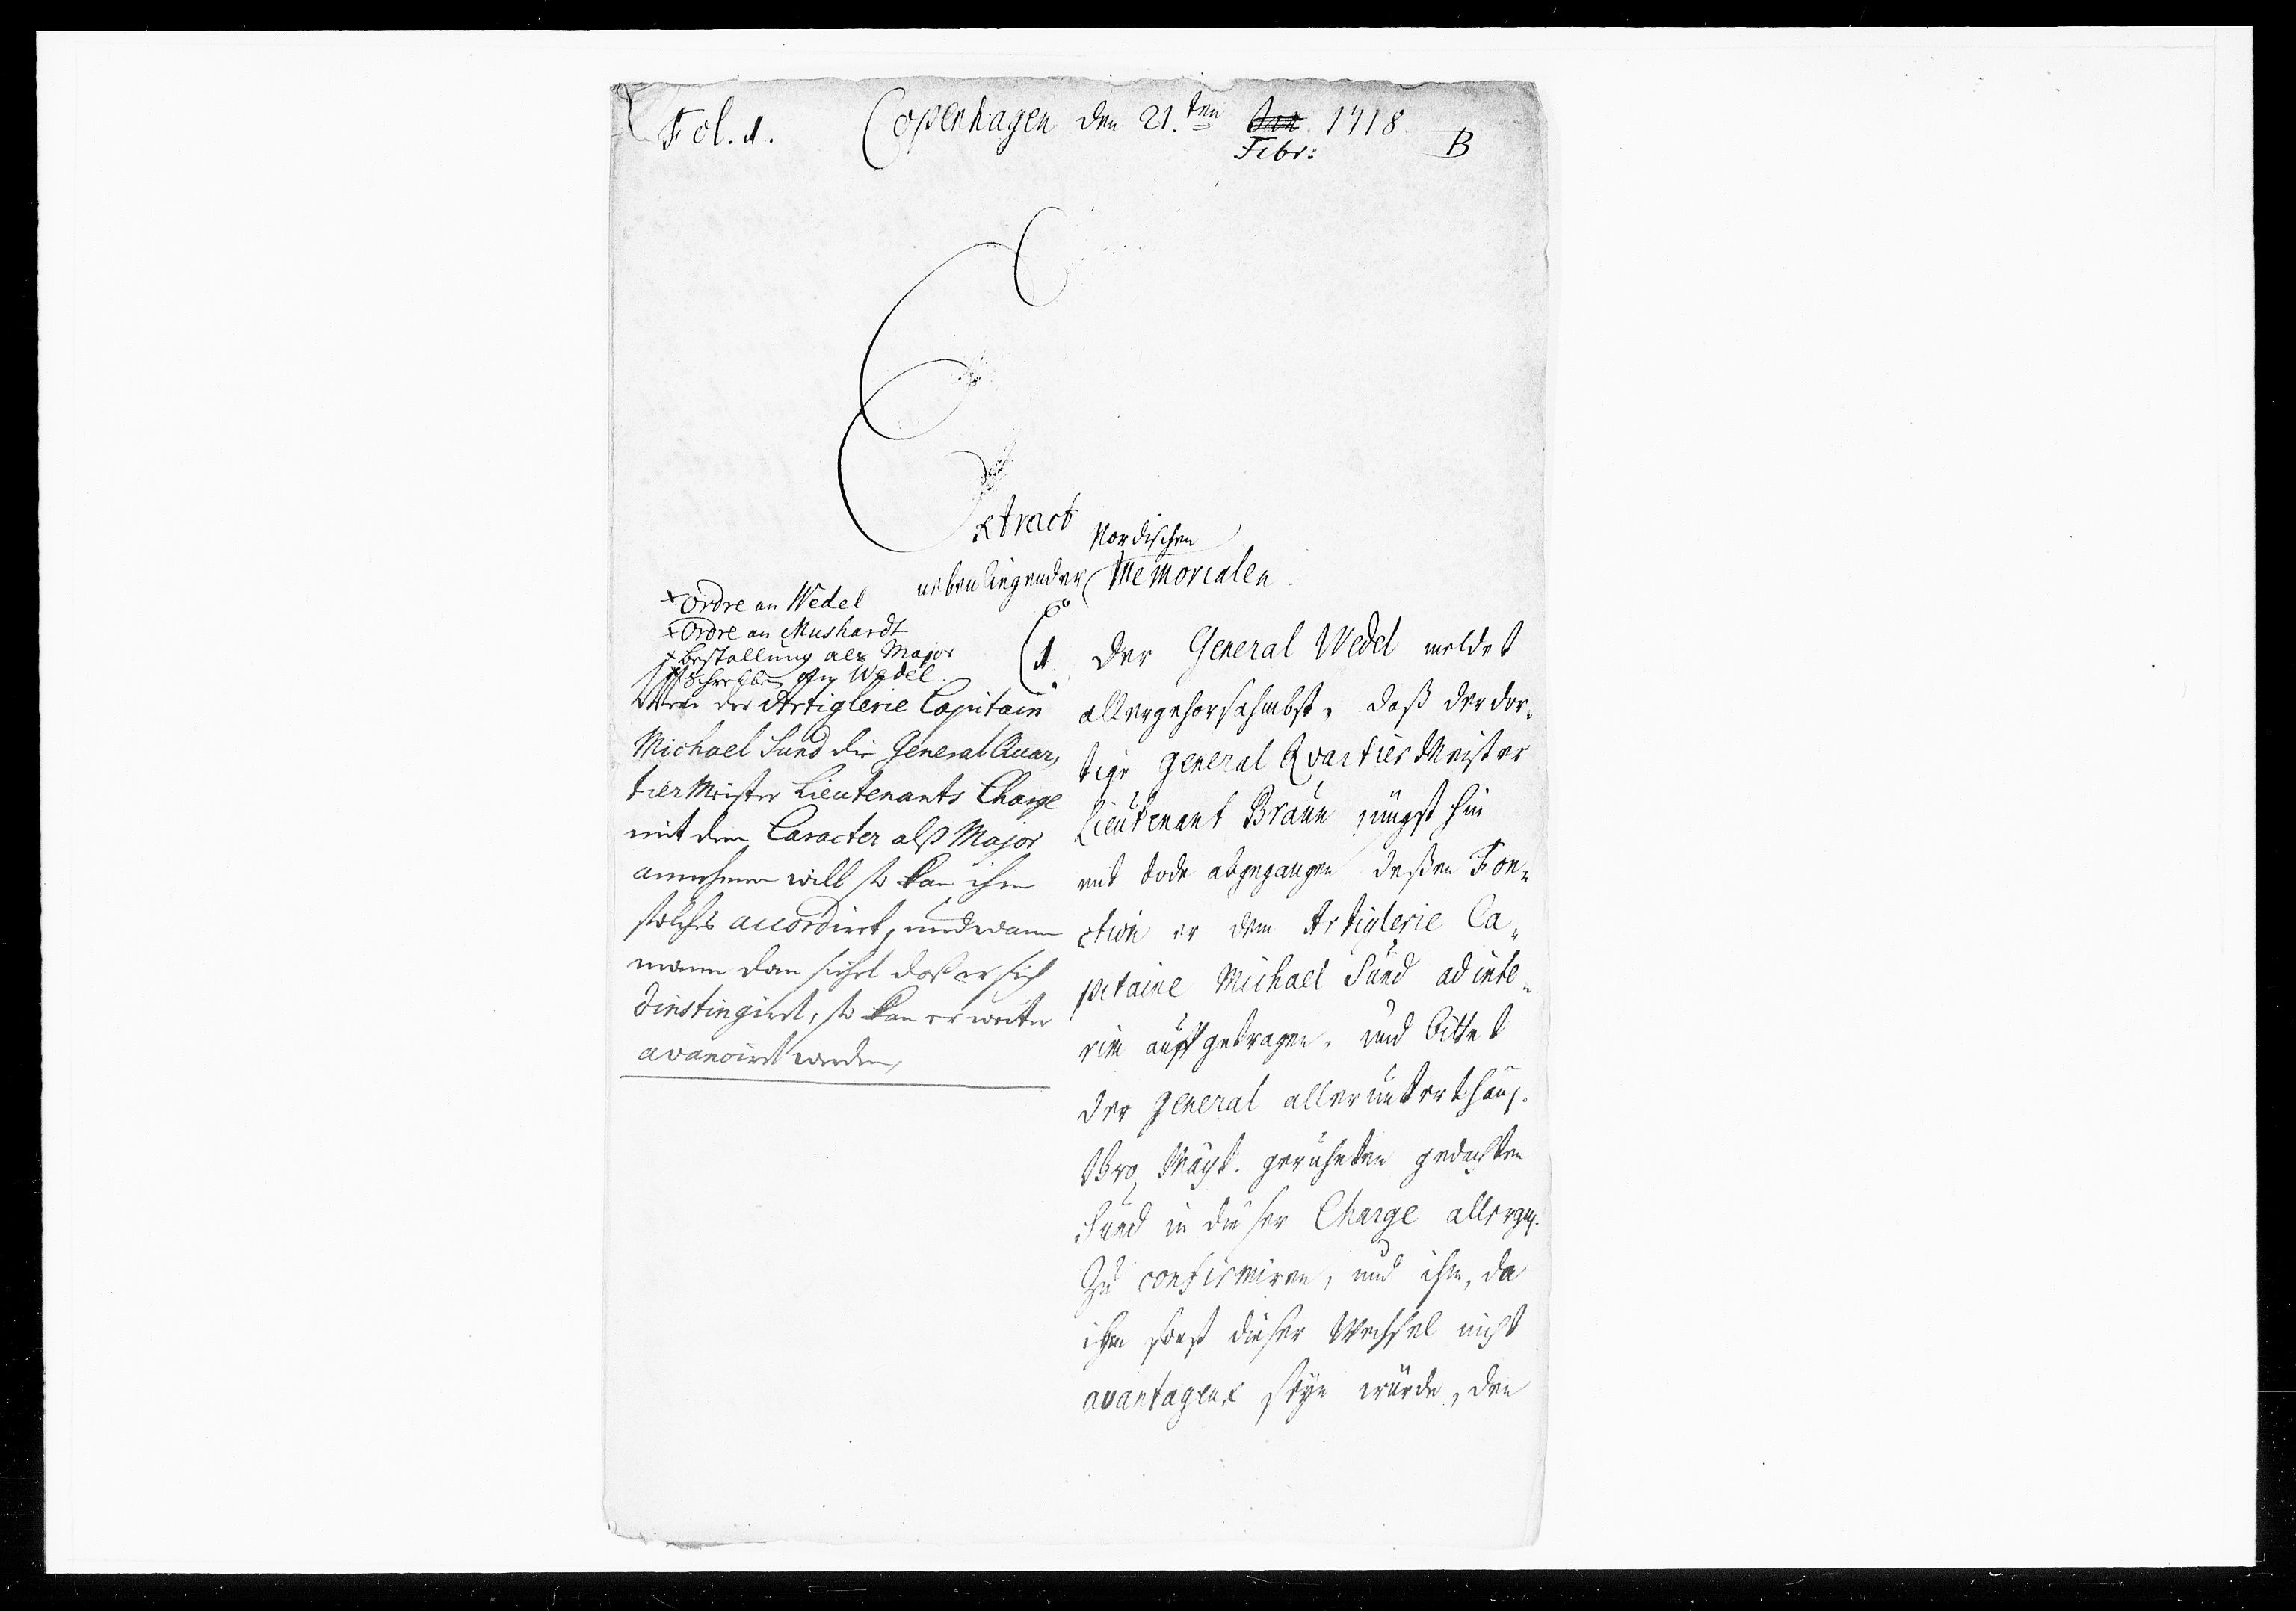 Fol. 1.
Copenhagen den 21.ten Jan 1718.
Febr:
B
Extract
Nordischen
nebenliegender Memorialen.
× Ordre an Wedel
× Ordre an Mushardt
× Bestallung als Major
× Schreiben an Wedel.
Wan der Artiglerie Capitain
Michael Sund die General Quar,
tier Meister Lieutenants Charge
mit dem Caracter alß Major
annehmen will so kan ihm
solches accordirt, und wann
mann dan siehet daß er sich
distingirt, so kan er weiter
avancirt werden,
1. Der General Wedel meldet
allergehorsahmbst, daß der dor,
tige General Qvartier Meister
Lieutenant Braun jüngst hin
mit tode abgegangen deßen Fon,
ction er dem Artiglerie Ca,
pitaine Michael Sund ad inte,
rim auffgetragen, und bittet
der General allerunterthänj.
Ewr Mayt. geruheten gedachten
Sund in dieser Charge allergn.
Zu confirmiren, und ihm, da
ihm sonst dieser Wechsel nicht
avantageux seyn würde, den